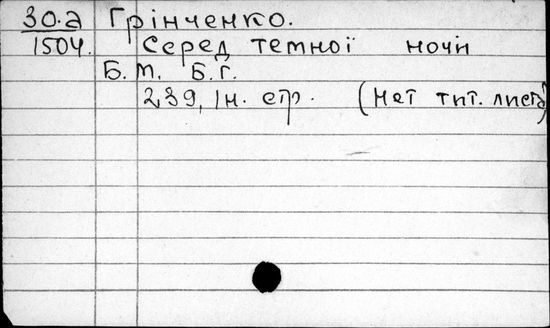 30.а Грінченко.
1504. Серед темної ночи
Б.м. Б.г.
239, 1н. стр. (Нет тит. листа)